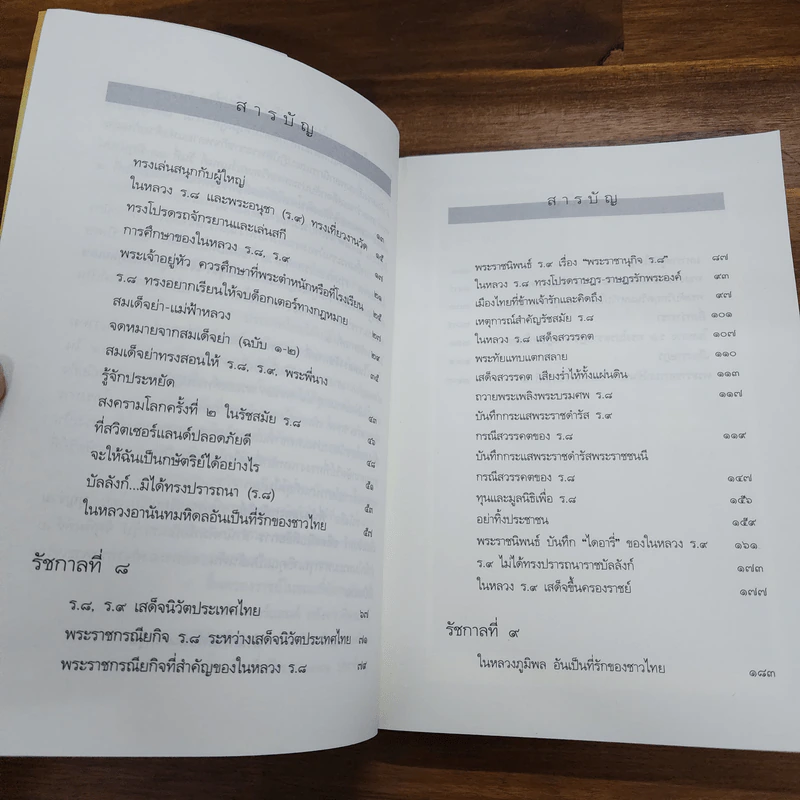 สารบัญ
ทรงเล่นสนุกกับผู้ใหญ่
ในหลวง ร.๘ และพระอนุชา (ร.๙) ทรงเที่ยวงานวัด ๑๓
ทรงโปรดรถจักรยานและเล่นสกี ๑๕
การศึกษาของในหลวง ร.๘, ร.๙ ๑๗
พระเจ้าอยู่หัว ควรศึกษาที่พระตำหนักหรือที่โรงเรียน ๒๑
ร.๘ ทรงอยากเรียนให้จบด็อกเตอร์ทางกฎหมาย ๒๕
สมเด็จย่า-แม่ฟ้าหลวง ๒๗
จดหมายจากสมเด็จย่า (ฉบับ ๑-๒) ๒๙
สมเด็จย่าทรงสอนให้ ร.๘, ร.๙, พระพี่นาง ๓๕
รู้จักประหยัด
สงครามโลกครั้งที่ ๒ ในรัชสมัย ร.๘ ๔๓
ที่สวิตเซอร์แลนด์ปลอดภัยดี ๔๖
จะให้ฉันเป็นกษัตริย์ได้อย่างไร ๔๘
บัลลังก์...มิได้ทรงปรารถนา (ร.๘) ๕๑
ในหลวงอานันทมหิดลอันเป็นที่รักของชาวไทย ๕๓
๕๗
รัชกาลที่ ๘
ร.๘, ร.๙ เสด็จนิวัตประเทศไทย ๖๗
พระราชกรณียกิจ ร.๘ ระหว่างเสด็จนิวัตประเทศไทย ๗๑
พระราชกรณียกิจที่สำคัญของในหลวง ร.๘ ๗๙
สารบัญ
พระราชนิพนธ์ ร.๙ เรื่อง "พระราชานุกิจ ร.๘" ๘๗
ในหลวง ร.๘ ทรงโปรดราษฎร-ราษฎรรักพระองค์ ๙๓
เมืองไทยที่ข้าพเจ้ารักและคิดถึง ๙๗
เหตุการณ์สำคัญรัชสมัย ร.๘ ๑๐๑
ในหลวง ร.๘ เสด็จสวรรคต ๑๐๗
พระทัยแทบแตกสลาย ๑๑๐
เสด็จสวรรคต เสียงร่ำไห้ทั้งแผ่นดิน ๑๑๓
ถวายพระเพลิงพระบรมศพ ร.๘ ๑๑๗
บันทึกกระแสพระราชดำรัส ร.๙
กรณีสวรรคตของ ร.๘ ๑๑๙
บันทึกกระแสพระราชดำรัสพระราชชนนี
กรณีสวรรคตของ ร.๘ ๑๔๗
ทุนและมูลนิธิเพื่อ ร.๘ ๑๕๖
อย่าทิ้งประชาชน ๑๕๙
พระราชนิพนธ์ บันทึก "ไดอารี่" ของในหลวง ร.๙ ๑๖๑
ร.๙ ไม่ได้ทรงปรารถนาราชบัลลังก์ ๑๗๓
ในหลวง ร.๙ เสด็จขึ้นครองราชย์ ๑๗๗
รัชกาลที่ ๙
ในหลวงภูมิพล อันเป็นที่รักของชาวไทย ๑๘๓